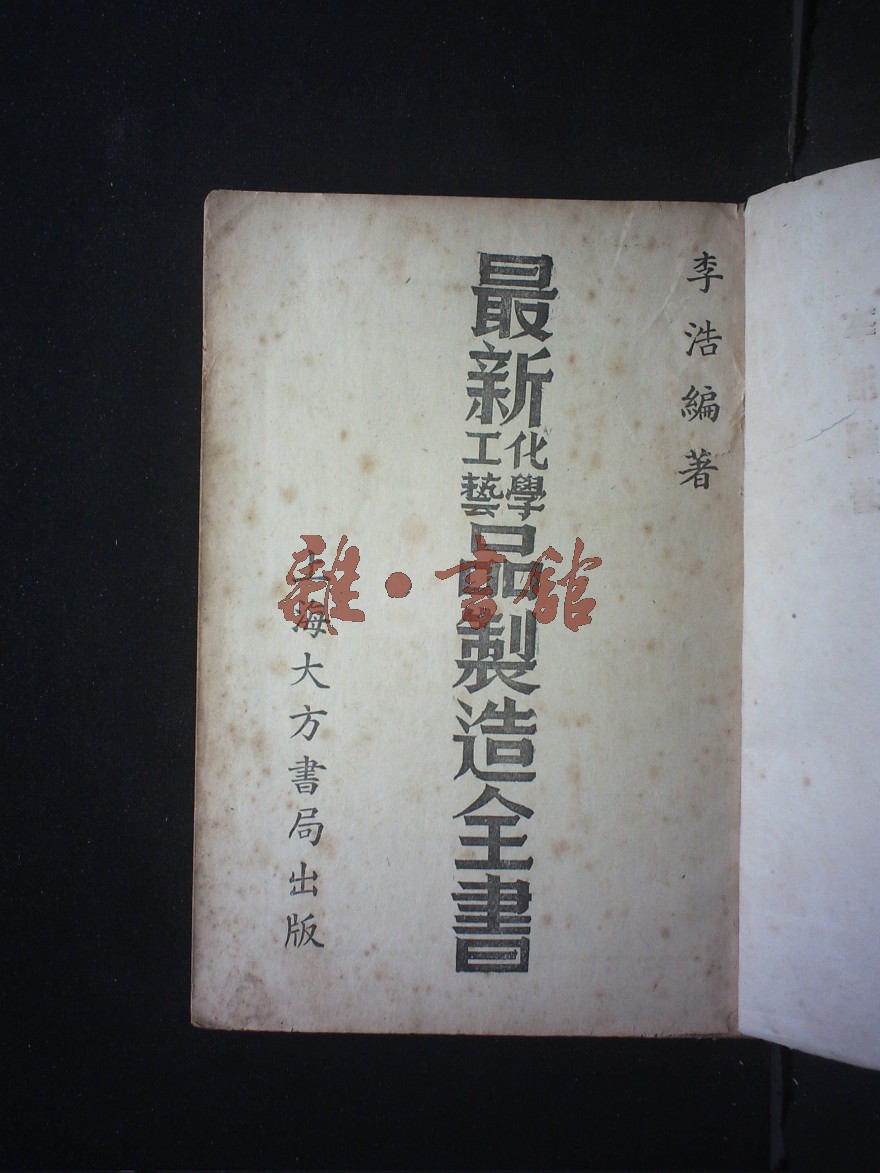 李浩編著
最新化學工藝品製造全書
上海大方書局出版
雜·書館